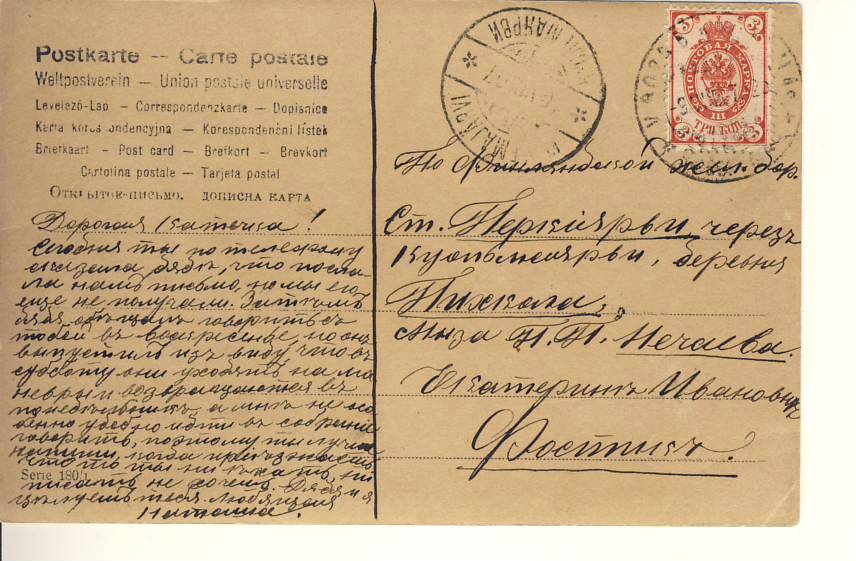 Postkarte -- Carte postale
Weltpostverein — Union postale universelle
Levelezö-Lap — Correspondenzkarte — Dopisnice
Karta korespondencyjna — Korespondenční lístek
Briefkaart — Post card — Brefkort — Brevkort
Cartolina postale — Tarjeta postal
Открытое-письмо. дописна карта
Дорогая Катечка!
Сегодня ты по телефону
сказала дядѣ, что посла-
ла намъ письмо, но мы его
еще не получали. Затѣмъ
дядя обѣщалъ говорить съ
тобой въ воскресенье, но онъ
выпустилъ изъ виду что въ
субботу они уходятъ на ма
невры и возвращаются въ
понедѣльникъ, а мнѣ не осо
бенно удобно идти въ собранiе
говорить, поэтому ты лучше
напиши, когда прiѣзжаешь
что то ты ни
писать не хочешь. Дядя и я
цѣлуемъ тебя. Любящая
Наташа.
Serie 180/1
По Финляндской жел. дор.
Ст. Перкіярви черезъ
Куолемаярви, деревня
Пихкала,
мыза Н. Н. Нечаева.
Екатеринѣ Ивановнѣ
Фостикъ.
ПОЧТОВАЯ МАРКА
3
3
III
ТРИ КОП.
3
3